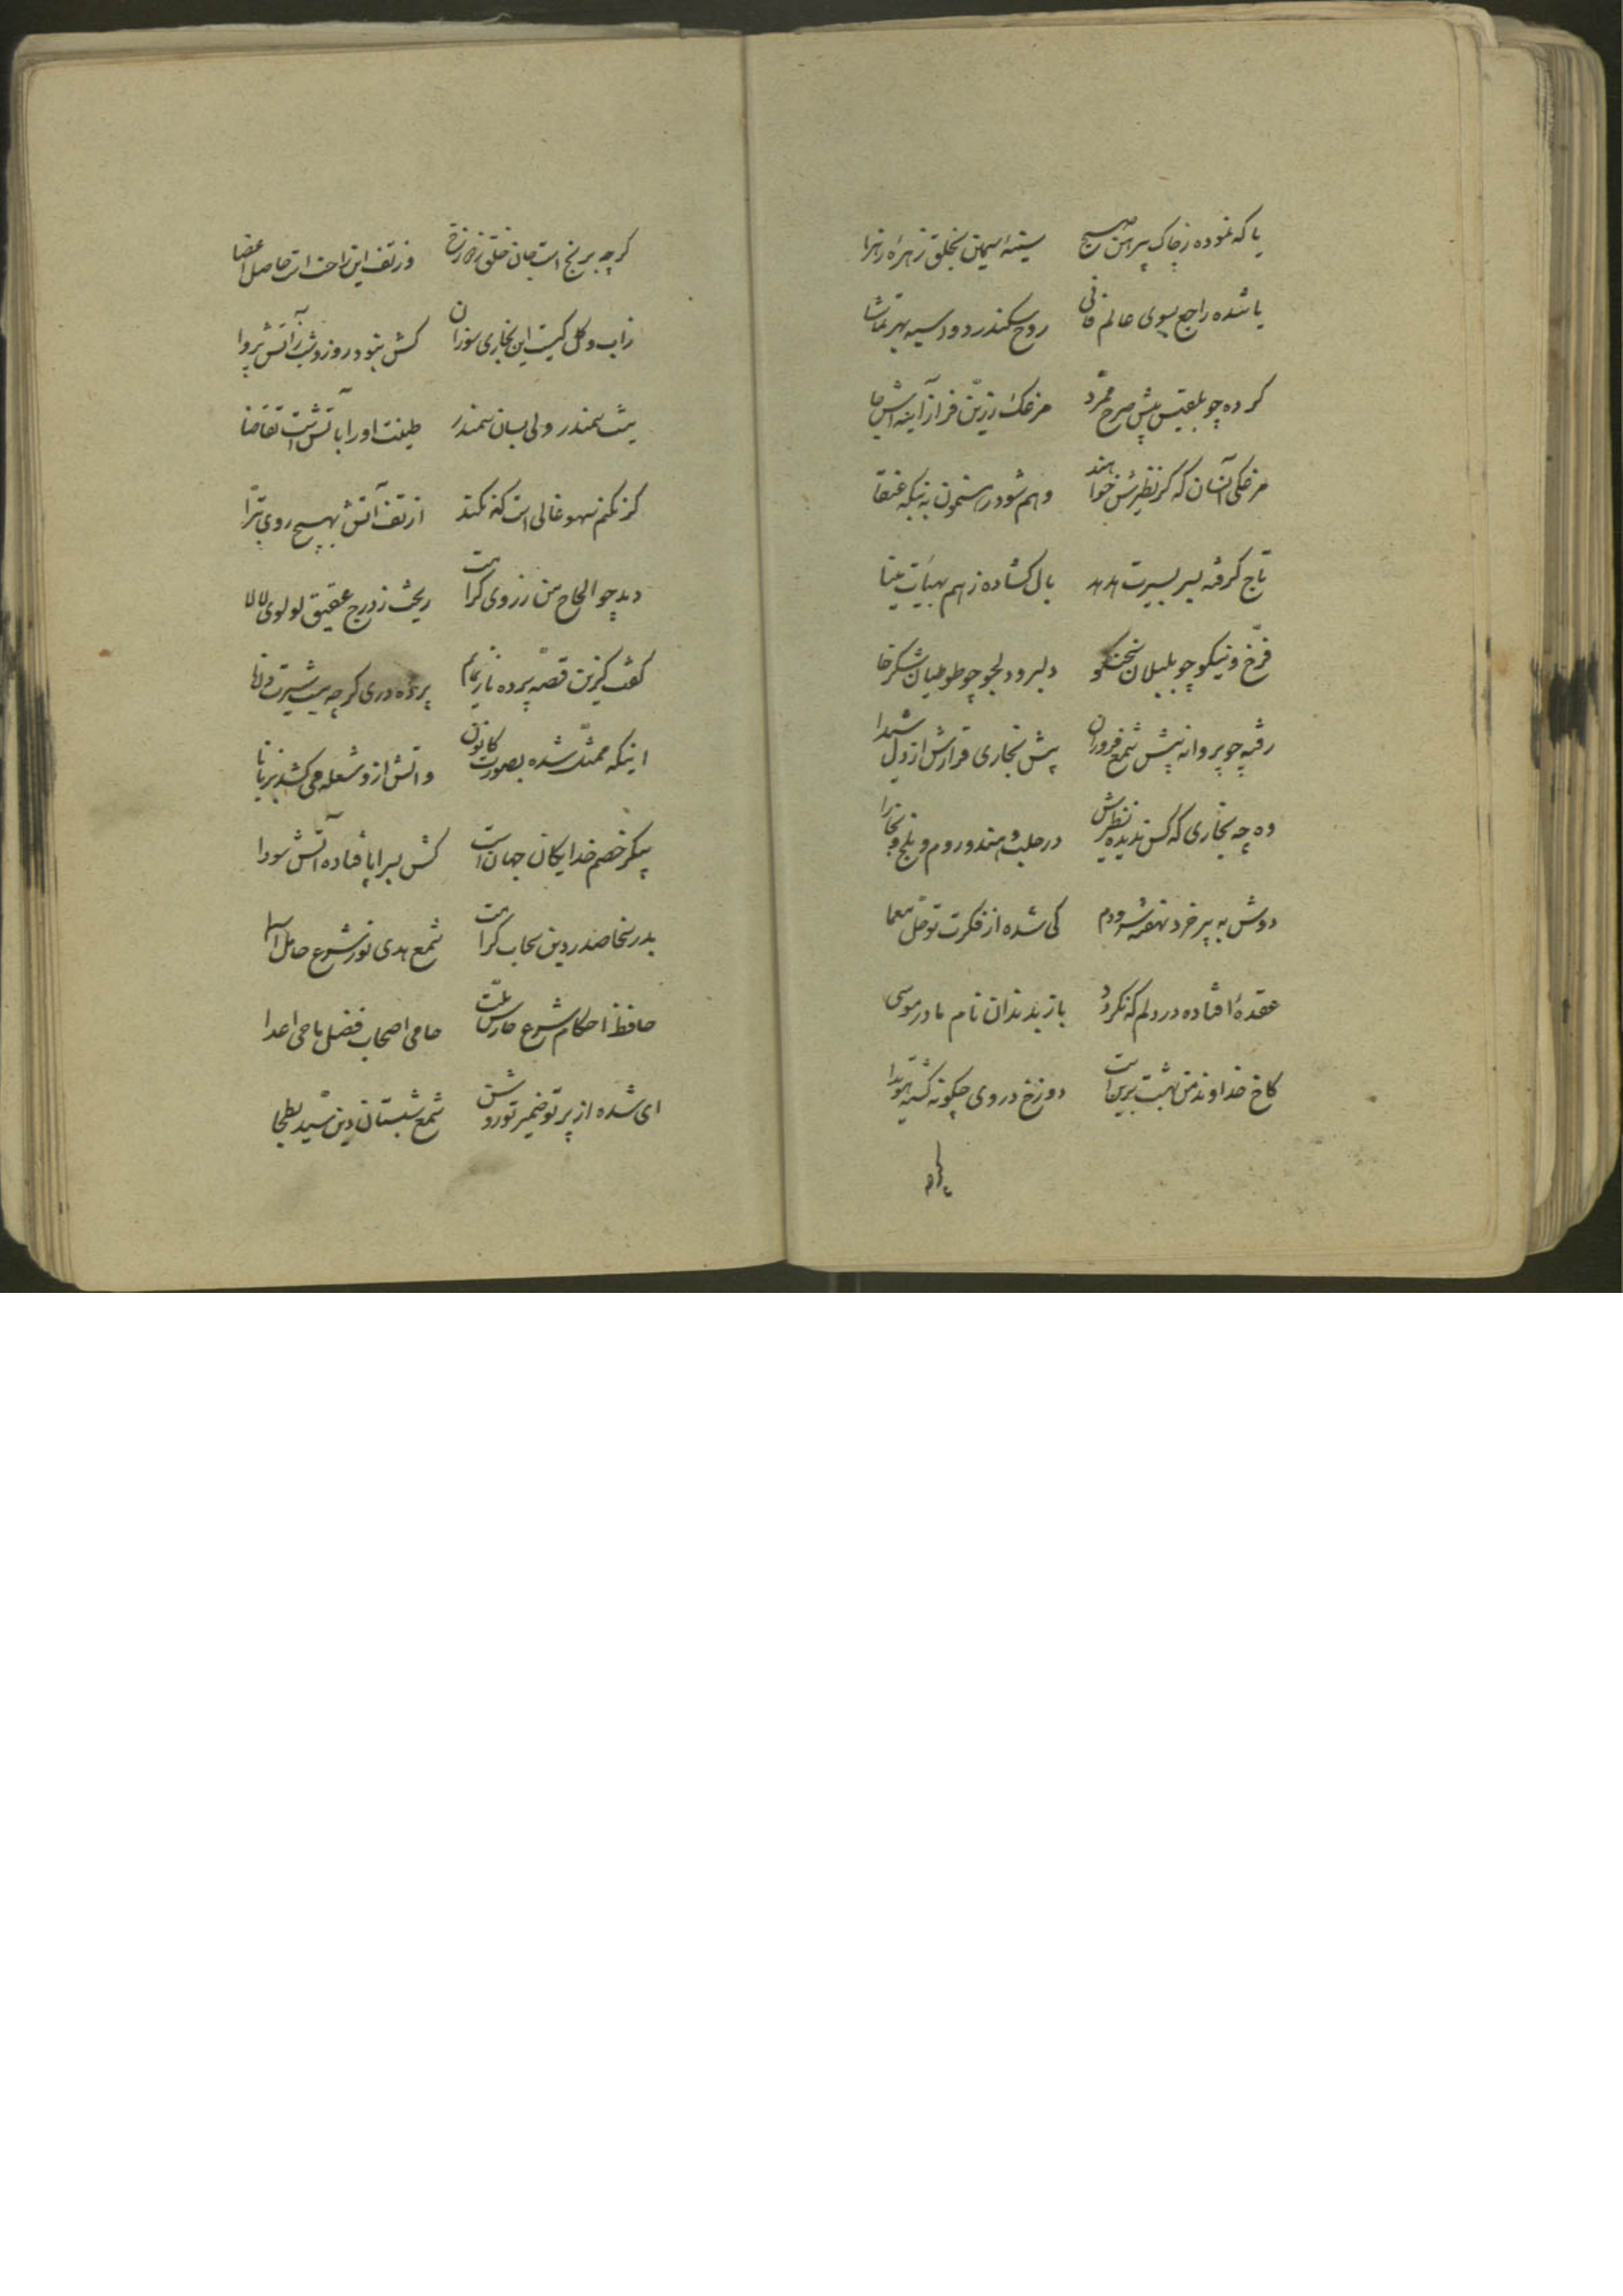 یا که نموده ز چاک پیرهن صبح سینهٔ سیمین بخلق زهرهٔ زهرا
یا شده راجع بسوی عالم فانی روح سکندر دوسیه بهر تماشا
کرده چو بلقیس پیش صرح ممرد مرغک زرین فراز آینه اش جا
مرغکی آنسان که کر نظیرش خواهند وهم شود رهنمون به نیکه عنقا
تاج کرفته بسر بسیرت هدهد بال کشاده ز هم بهیأت مینا
فرخ و نیکو چو بلبلان سخنکو دلبر و دلجو چو طوطیان شکرخا
رفته چو پروانه پیش شمع فروزان پیش بخاری قرارش از دل شیدا
وه چه بخاری که کس ندیده نظیرش در حلب و هند و روم و بلخ و بخارا
دوش به پیر خرد نهفته سرودم کی شده از فکرت تو حل معما
عقدهٔ افتاده در دلم که نکردد باز بدندان نام مادر موسی
کاخ خداوند من بهشت برین است دوزخ در وی چکونه کشته هویدا
کرچه
کرچه برنج است جان خلق ز دوزخ وز تف این راحت است حاصل اعضا
زاب و کل کیست این بخاری سوزان کش نبود روز و شب ز آتش پروا
نیست سمندر ولی بسان سمندر طینت او را بآتش است تقاضا
کر نکنم سهو غالی است که نکند از تف آتش بهیچ روی تبرا
دید چو الحاح من ز روی کرامت ریخت ز درج عقیق لولوی لالا
کفت کزین قصه پرده باز نمایم پرده دری کرچه نیست سیرت دانا
اینکه ممثل شده بصورت کانون و آتش ازو شعله می کشد بزبانا
پیکر خصم خدایکان جهان است کش بسراپا فتاده آتش سودا
بدر سخا صدر دین سحاب کرامت شمع هدی نور شرع حامل اسما
حافظ احکام شرع حارس ملت حامی اصحاب فضل ماحی اعدا
ای شده از پرتو ضمیر تو روشن شمع شبستان دین سید بطحا